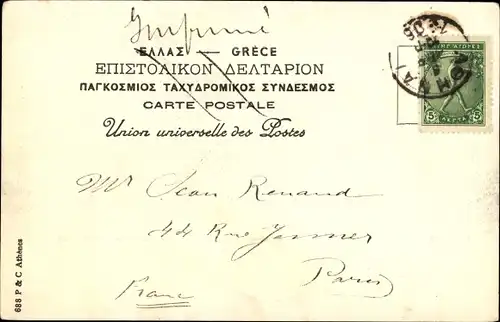 Imprimé
ΕΛΛΑΣ — GRÈCE
ΕΠΙΣΤΟΛΙΚΟΝ ΔΕΛΤΑΡΙΟΝ
ΠΑΓΚΟΣΜΙΟΣ ΤΑΧΥΔΡΟΜΙΚΟΣ ΣΥΝΔΕΣΜΟΣ
CARTE POSTALE
Union universelle des Postes
5 ΛΕΠΤΑ 5
Mr Jean Renaud
44 Rue
Paris
France
688 P & C Athènes